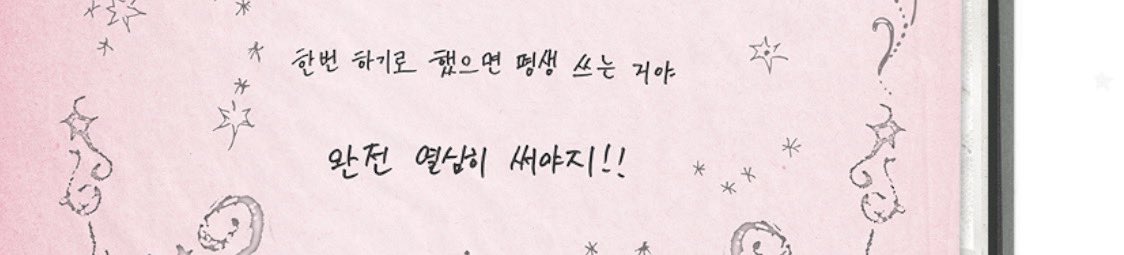 한번 하기로 했으면 평생 쓰는 거야
완전 열심히 써야지!!